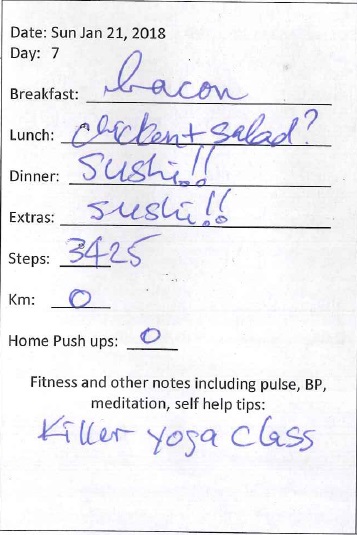 Date: Sun Jan 21, 2018
Day: 7
Breakfast: bacon
Lunch: chicken + salad?
Dinner: sushi!!
Extras: sushi!!
Steps: 3425
Km: 0
Home Push ups: 0
Fitness and other notes including pulse, BP,
meditation, self help tips:
Killer yoga class